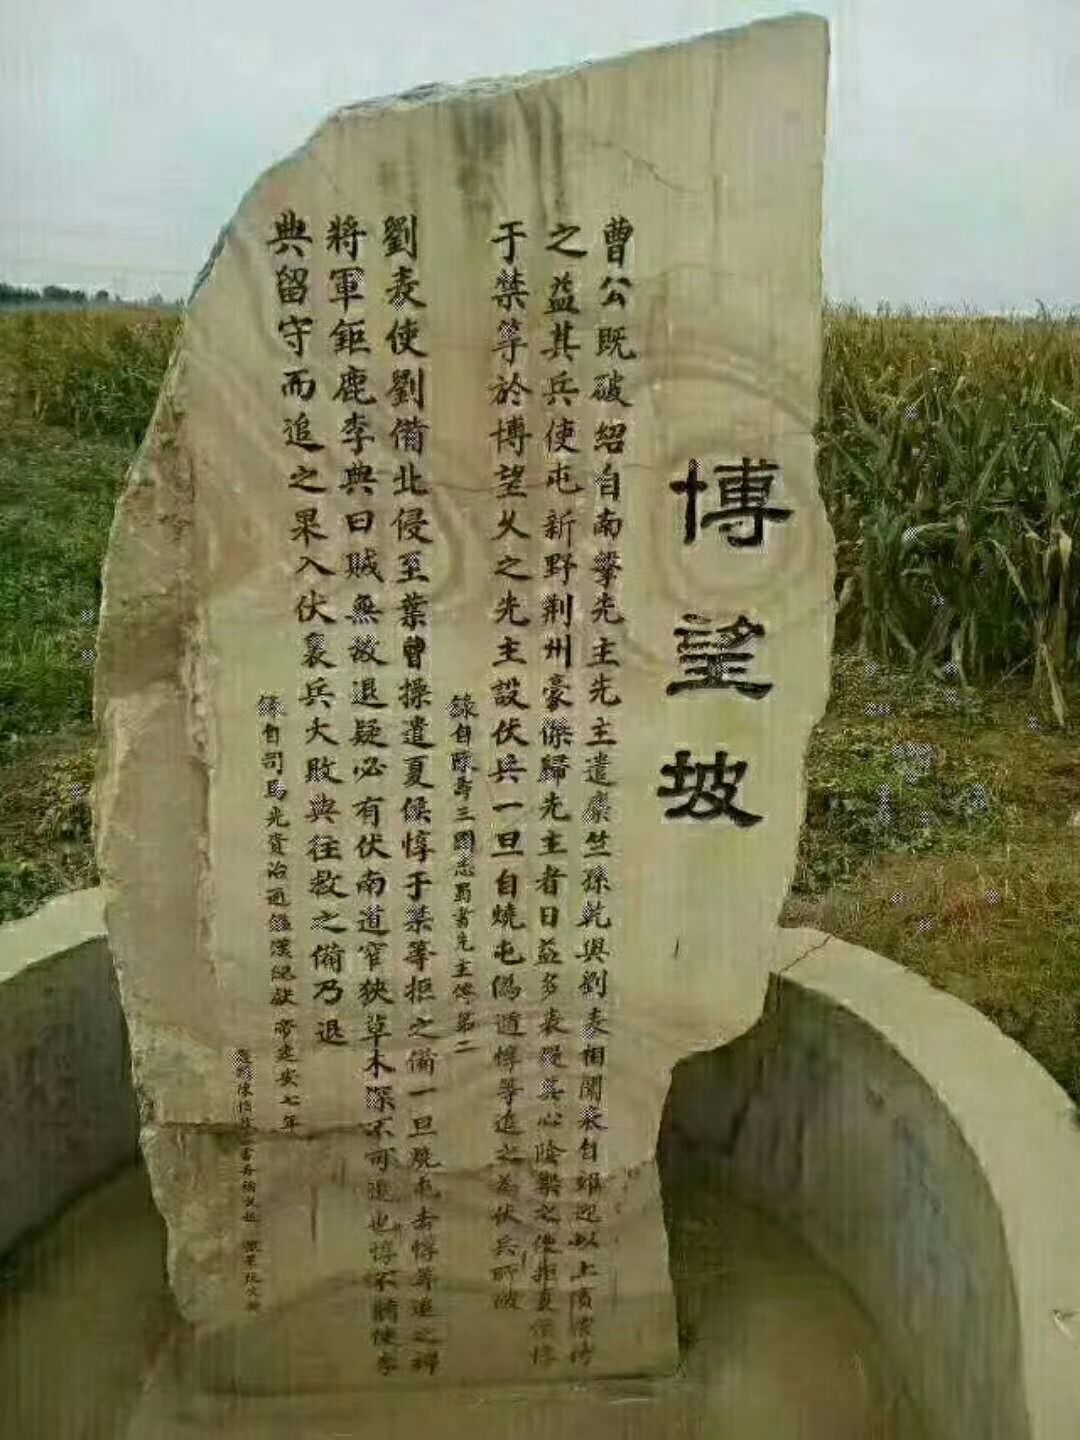 博望坡
曹公既破紹自南擊先主先主遣麋竺孫乾與劉表相聞表自郊迎以上賓禮待
之益其兵使屯新野荆州豪傑歸先主者日益多表疑其心陰禦之使拒夏侯惇
于禁等於博望久之先主設伏兵一旦自燒屯僞遁惇等追之為伏兵所破
錄自陳壽三國志蜀書先主傳第二
劉表使劉備北侵至葉曹操遣夏侯惇于禁等拒之備一旦燒屯去惇等追之裨
將軍鉅鹿李典曰賊無故退疑必有伏南道窄狹草木深不可追也惇不聽使李
典留守而追之果入伏裏兵大敗典往救之備乃退
錄自司馬光資治通鑑漢紀獻帝建安七年